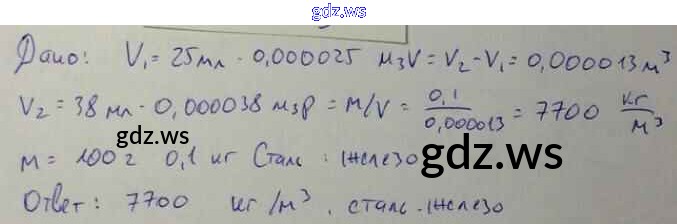 gdz.ws
Дано: V₁ = 25 мл · 0,000025 м₃ V = V₂ - V₁ = 0,000013 м³
V₂ = 38 мл · 0,000038 м₃ρ = M/V = 0,1/0,000013 = 7700 кг/м³
gdz.ws
gdz.ws
M = 100 г 0,1 кг Сталь · Железо
Ответ: 7700 кг/м³, сталь · Железо
gdz.ws